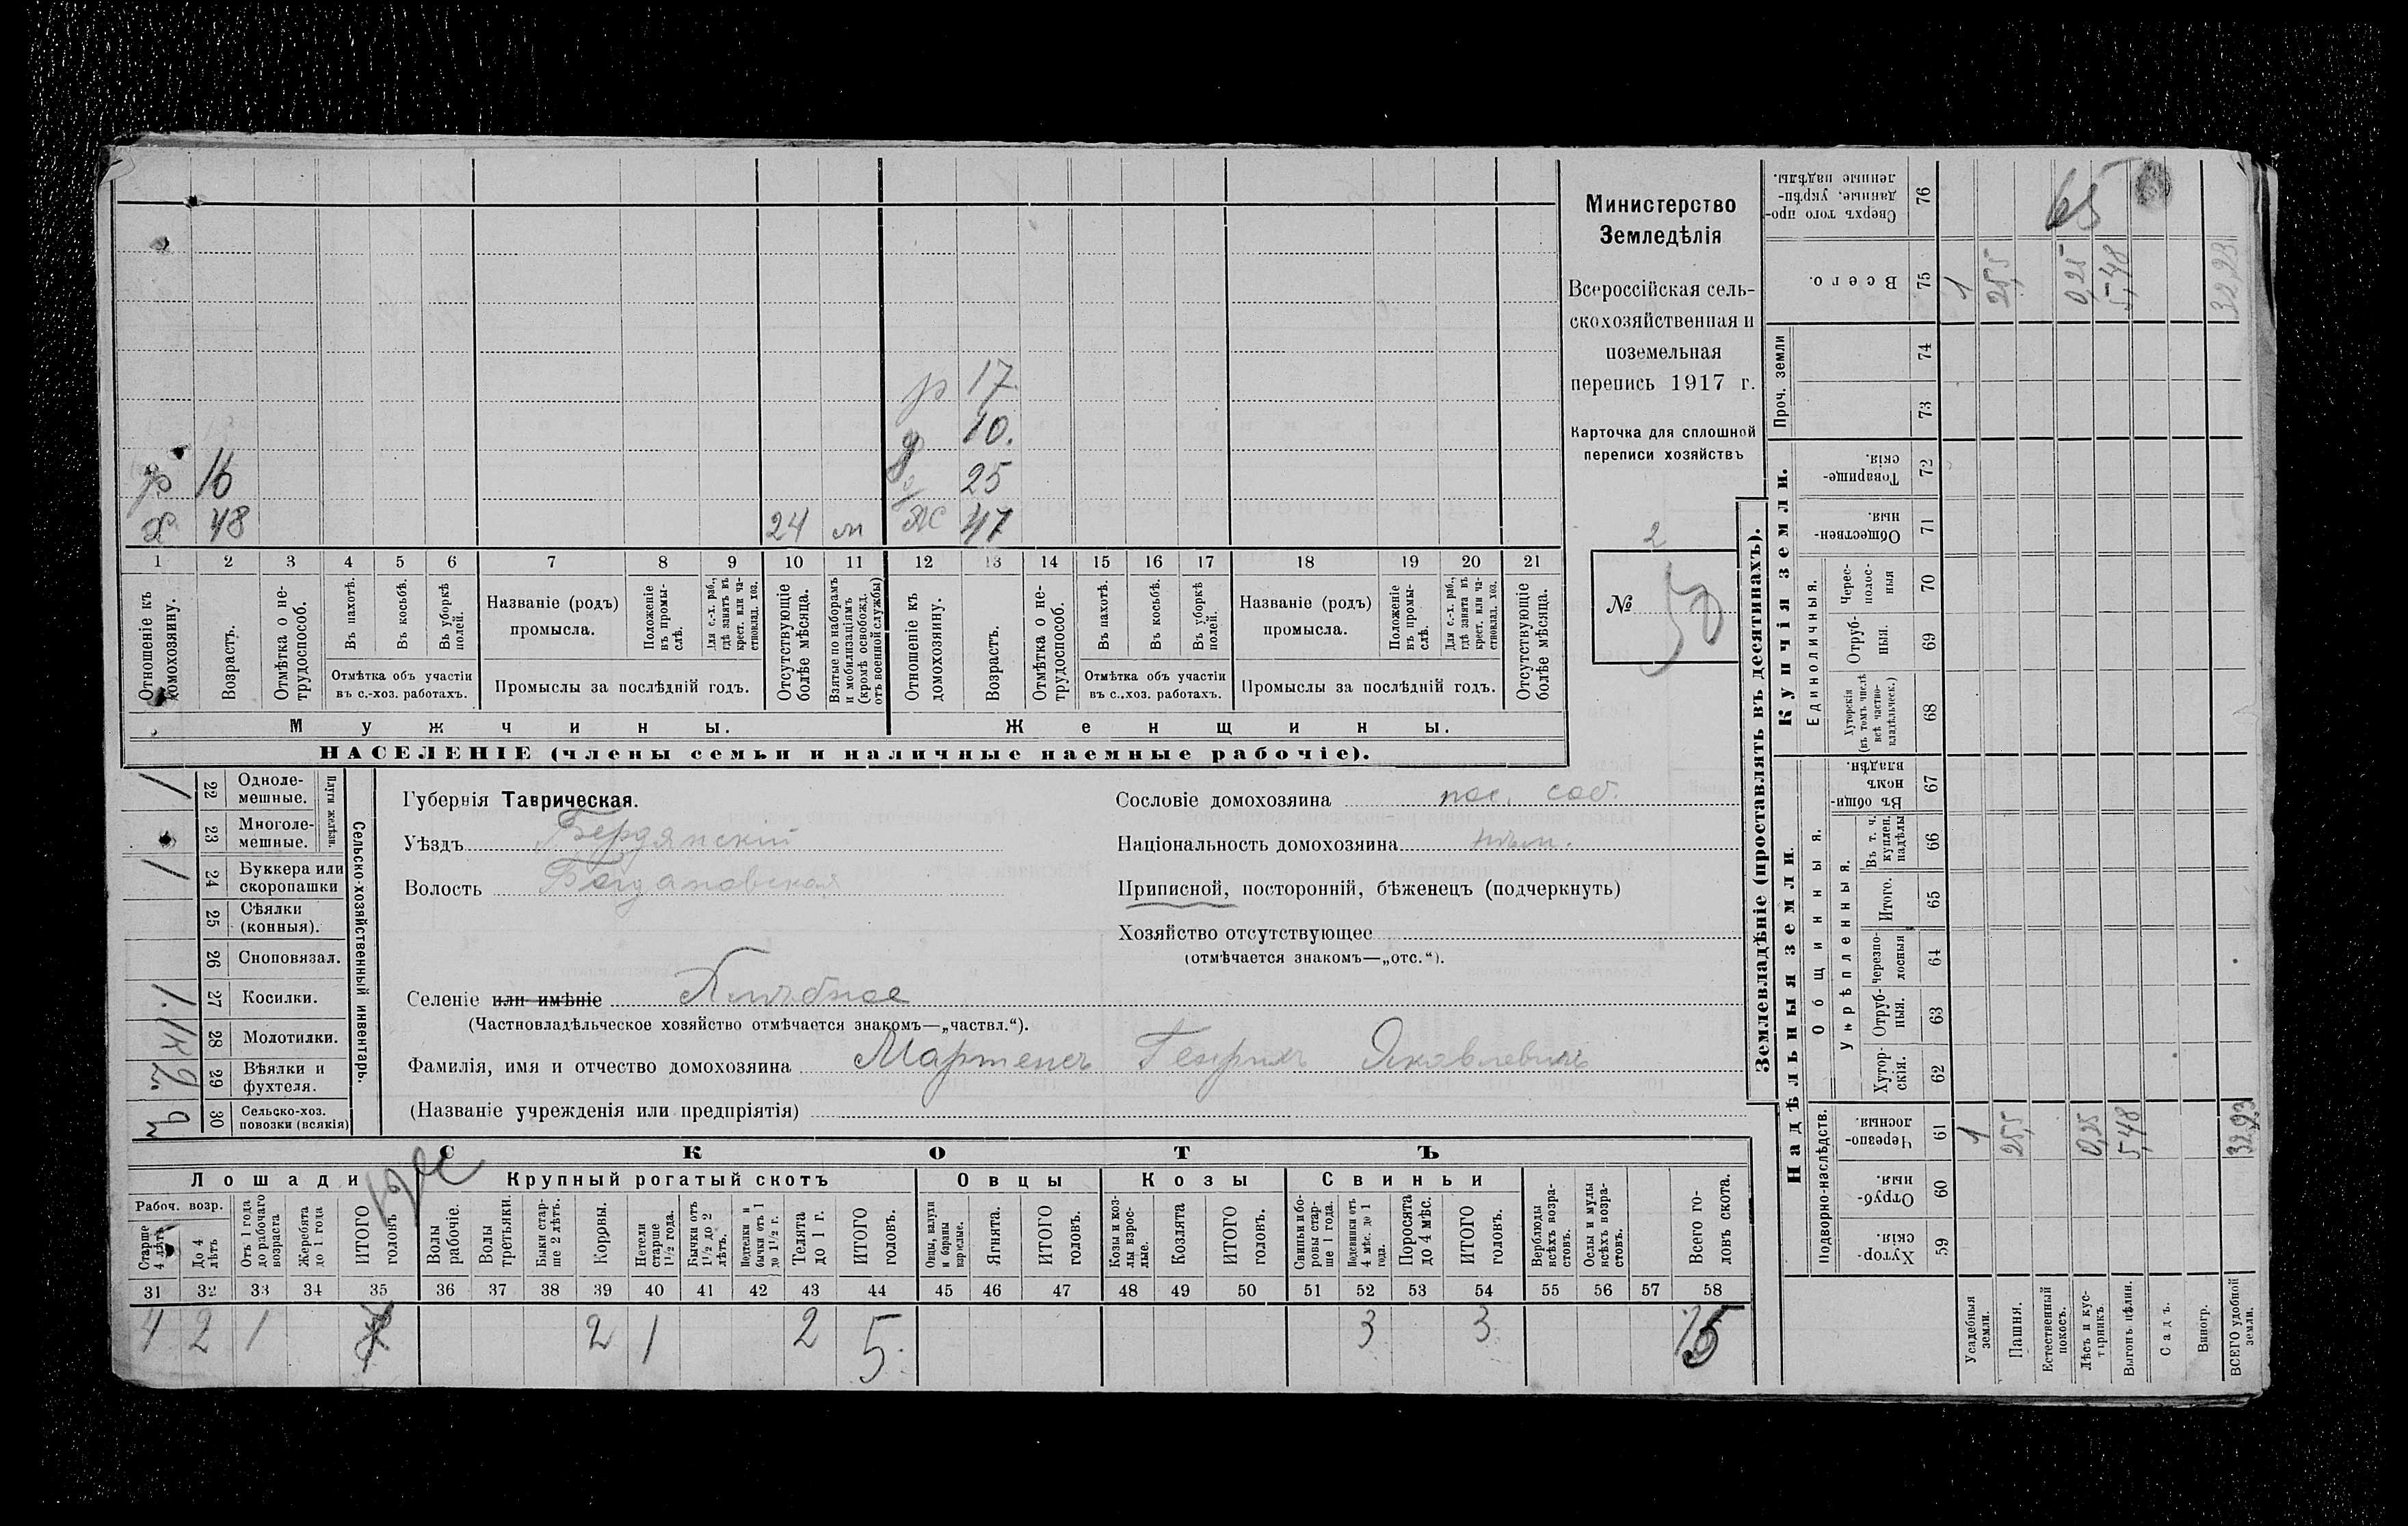 65
Министерство
Земледѣлія
Всероссійская сель-
скохозяйственная и
поземельная
перепись 1917 г.
Карточка для сплошной
переписи хозяйствъ
2
№ 50
р 17
10.
р 16 25
х 48 24 м ж 47
1 2 3 4 5 6 7 8 9 10 11 12 13 14 15 16 17 18 19 20 21
Отношеніе къ домохозяину.
Возрастъ.
Отмѣтка о не-трудоспособ.
Въ пахотѣ.
Въ косьбѣ.
Въ уборкѣ полей.
Отмѣтка объ участіи
въ с.-хоз. работахъ.
Названіе (родъ)
промысла.
Положеніе въ промы-слѣ.
Для с.-х. раб., гдѣ занятъ въ крест. или ча-стновлад. хоз.
Промыслы за послѣдній годъ.
Отсутствующіе болѣе мѣсяца.
Взятые по наборамъ и мобилизаціямъ (кромѣ освобожд. отъ военной службы)
Отношеніе къ домохозяину.
Возрастъ.
Отмѣтка о не-трудоспособ.
Въ пахотѣ.
Въ косьбѣ.
Въ уборкѣ полей.
Отмѣтка объ участіи
въ с.-хоз. работахъ.
Названіе (родъ)
промысла.
Положеніе въ промы-слѣ.
Для с.-х. раб., гдѣ занята въ крест. или ча-стновлад. хоз.
Промыслы за послѣдній годъ.
Отсутствующіе болѣе мѣсяца.
Мужчины. Женщины.
НАСЕЛЕНІЕ (члены семьи и наличные наемные рабочіе).
Сельско-хозяйственный инвентарь.
Плуги желѣзн.
1 22 Однолемешные.
23 Многолемешные.
1 24 Буккера или скоропашки
25 Сѣялки (конныя).
26 Сноповязал.
1. 27 Косилки.
1к 28 Молотилки.
2. 29 Вѣялки и фухтеля.
30 Сельско-хоз. повозки (всякія)
Губернія Таврическая.
Уѣздъ Бердянскій
Волость Богдановская
Сословіе домохозяина пос. соб.
Національность домохозяина нѣм.
Приписной, посторонній, бѣженецъ (подчеркнуть)
Хозяйство отсутствующее
(отмѣчается знакомъ—„отс.“).
Селеніе или имѣніе Хлѣбное
(Частновладѣльческое хозяйство отмѣчается знакомъ—„частвл.“).
Фамилія, имя и отчество домохозяина Мартенсъ Генрихъ Яковлевичъ
(Названіе учрежденія или предпріятія)
СКОТЪ
Лошади Крупный рогатый скотъ Овцы Козы Свиньи
Рабоч. возр.
Старше 4 лѣтъ
До 4 лѣтъ
Отъ 1 года до рабочаго возраста
Жеребята до 1 года
ИТОГО головъ
Волы рабочіе.
Волы третьяки.
Быки стар-ше 2 лѣтъ.
Коровы.
Нетели старше 1½ года.
Бычки отъ 1½ до 2 лѣтъ.
Подтелки и бычки отъ 1 до 1½ г.
Телята до 1 г.
ИТОГО головъ.
Овцы, валухи и бараны взрослые.
Ягнята.
ИТОГО головъ.
Козы и коз-лы взрос-лые.
Козлята
ИТОГО головъ.
Свиньи и бо-ровы стар-ше 1 года.
Подсвинки отъ 4 мѣс. до 1 года.
Поросята до 4 мѣс.
ИТОГО головъ.
Верблюды всѣхъ возра-стовъ.
Ослы и мулы всѣхъ возра-стовъ.
Всего го-ловъ скота.
31 32 33 34 35 36 37 38 39 40 41 42 43 44 45 46 47 48 49 50 51 52 53 54 55 56 57 58
4 2 1 7 2 1 2 5. 3 3 15
Землевладѣніе (проставлять въ десятинахъ).
Надѣльныя земли. Купчія земли.
Подворно-наслѣдств. Общинныя. Единоличныя. Проч. земли
Укрѣпленныя.
Хутор-скія. 59
Отруб-ныя. 60
Черезпо-лосныя. 61
Хутор-скія. 62
Отруб-ныя. 63
Черезпо-лосныя 64
Итого. 65
Въ т. ч. куплен. надѣлы 66
Въ общин-номъ владѣн. 67
Хуторскія (въ томъ числѣ всѣ частно-владѣльческ.) 68
Отруб-ныя. 69
Черес-полос-ныя 70
Обществен-ныя. 71
Товарище-скія. 72
73
74
Всего. 75
Сверхъ того про-данные, укрѣп-ленные надѣлы. 76
Усадебныя земли. 1 1
Пашня. 25,5 25,5
Естественный покосъ.
Лѣсъ и кус-тарникъ. 0,25 0,25
Выгонъ цѣлин. 5,48 5,48
Садъ.
Виногр.
ВСЕГО удобной земли. 32,23 32,23